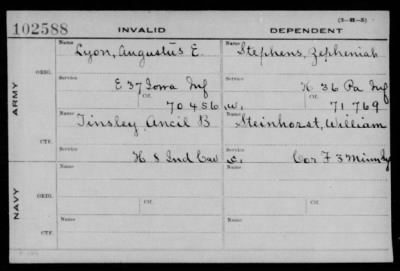 (3-81-5)
102588 INVALID DEPENDENT
Name Name
Lyon, Augustus E. Stephens, Zepheniah
ORIG.
Service Service
E 37 Iowa Inf K 36 Pa Inf
Ctf. Ctf.
70 456 W. 71 769
ARMY
Name Name
Tinsley Ancil B Steinhorst, William
CTF.
Service Service
H 8 Ind Cav C. Cor F 3 Minn
NAVY
ORIG.
Name Ctf. Name Ctf.
CTF.
Name Name